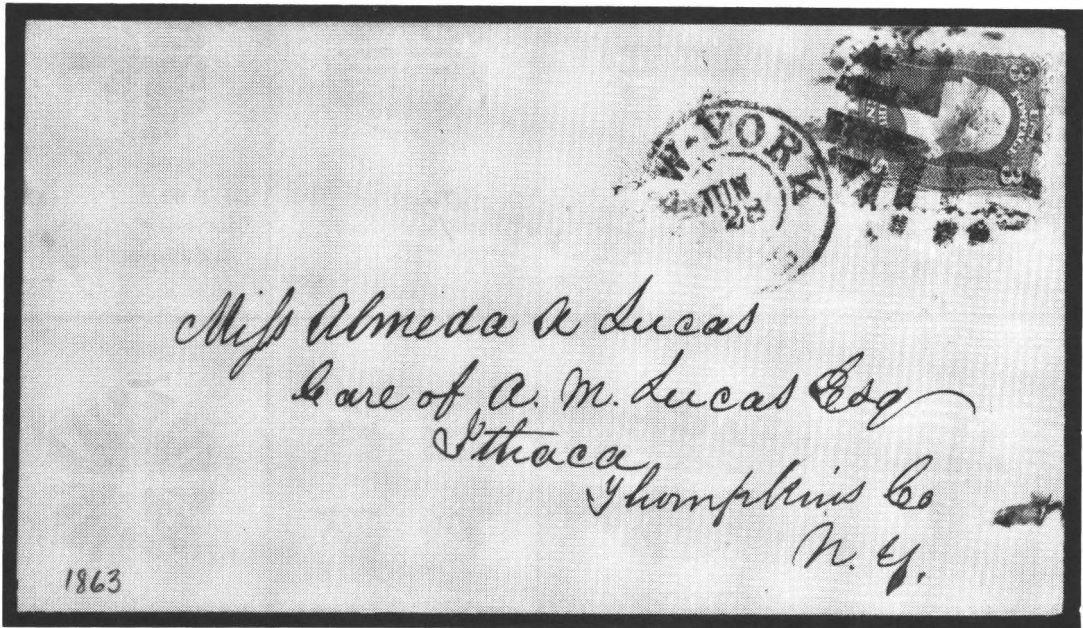 W-YORK
JUN
3
3
Miss Almeda A Lucas
Care of A. M. Lucas Esq
Ithaca
Thompkins Co
N. Y.
1863